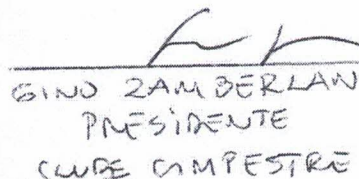 GINO ZAMBERLAN
PRESIDENTE
CLUBE CAMPESTRE